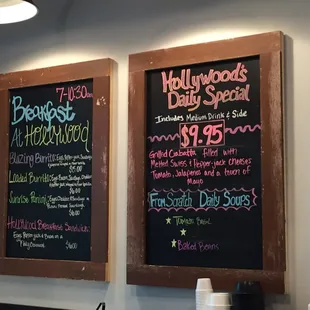 7-10:30am
Breakfast
At Hollywood
Blazing Burrito
$5.00
Loaded Burrito
$6.00
Sunrise Panini
$6.00
Hollywood Breakfast
Sandwich
$6.00
Hollywood's
Daily Special
Includes Medium Drink & Side
$9.95
Grilled Ciabatta filled with
Melted Swiss & Pepper-jack cheeses
Tomato, Jalapenos and a touch of
Mayo
From Scratch Daily Soups
Tomato
Baked Beans